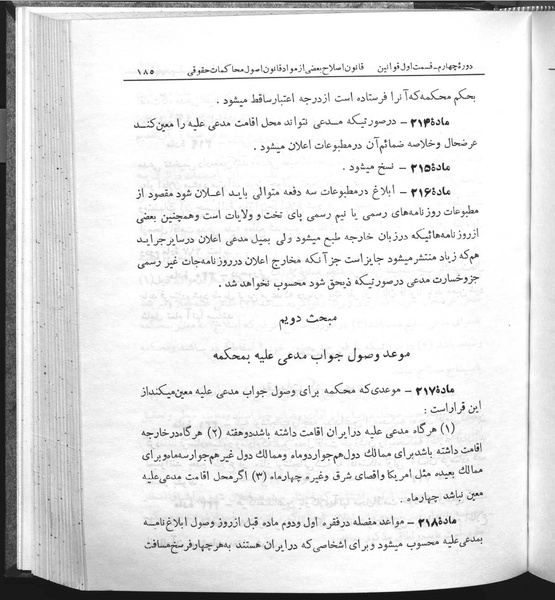 دورهٔ چهارم - قسمت اول قوانین قانون اصلاح بعضی از مواد قانون اصول محاکمات حقوقی ۱۸۵
بحکم محکمه که آنرا فرستاده است از درجه اعتبار ساقط میشود .
مادهٔ ۲۱۴ - در صورتیکه مدعی نتواند محل اقامت مدعی علیه را معین کند
عرضحال و خلاصه ضمائم آن در مطبوعات اعلان میشود .
مادهٔ ۲۱۵ - نسخ میشود .
مادهٔ ۲۱۶ - ابلاغ در مطبوعات سه دفعه متوالی باید اعلان شود مقصود از
مطبوعات روزنامه های رسمی یا نیم رسمی پای تخت و ولایات است و همچنین بعضی
از روزنامه هائیکه در زبان خارجه طبع میشود ولی بمیل مدعی اعلان در سایر جراید
هم که زیاد منتشر میشود جایز است جز آنکه مخارج اعلان در روزنامه جات غیر رسمی
جزو خسارت مدعی در صورتیکه ذیحق شود محسوب نخواهد شد .
مبحث دویم
موعد وصول جواب مدعی علیه بمحکمه
مادهٔ ۲۱۷ - موعدی که محکمه برای وصول جواب مدعی علیه معین میکند از
این قرار است :
(۱) هر گاه مدعی علیه در ایران اقامت داشته باشد دو هفته (۲) هر گاه در خارجه
اقامت داشته باشد برای ممالک دول هم جوار دو ماه و ممالک دول غیر هم جوار سه ماه و برای
ممالک بعیده مثل امریکا و اقصای شرق و غیره چهار ماه (۳) اگر محل اقامت مدعی علیه
معین نباشد چهار ماه .
مادهٔ ۲۱۸ - مواعد مفصله در فقره اول و دوم ماده قبل از روز وصول ابلاغ نامه
بمدعی علیه محسوب میشود و برای اشخاصی که در ایران هستند به هر چهار فرسخ مسافت